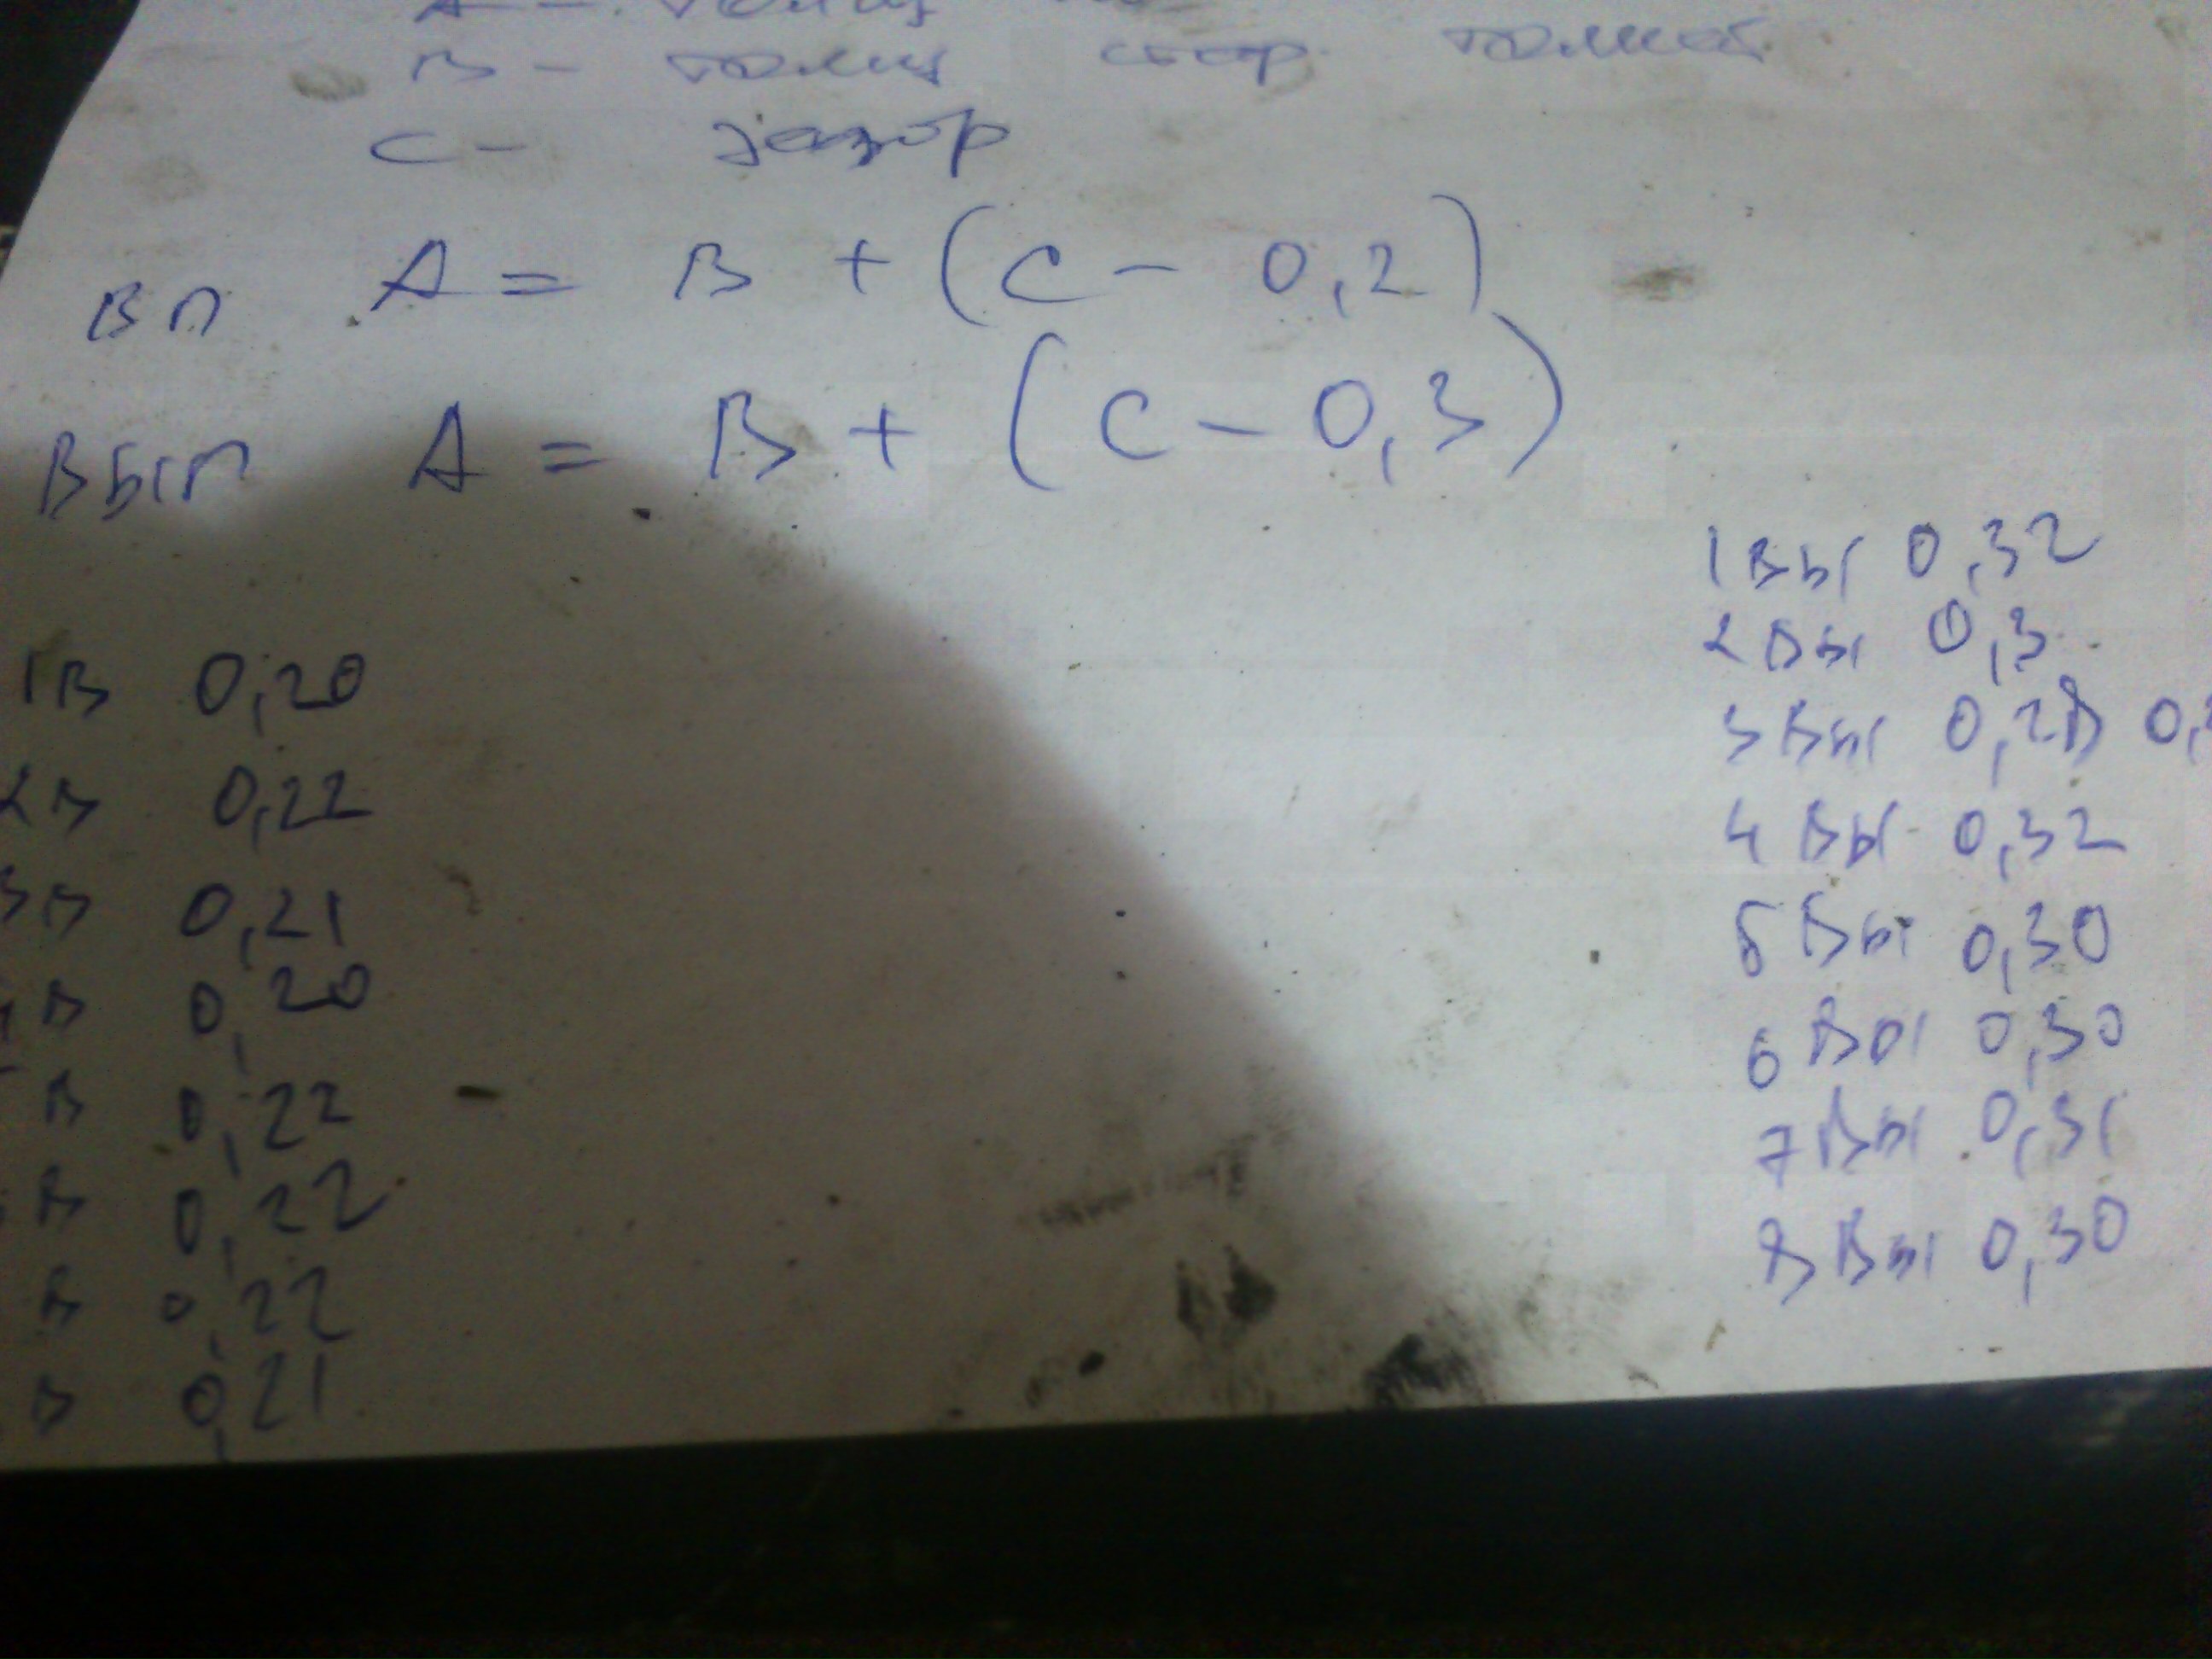 В - толщ стар. толкат.
С - зазор
вп А = В + (С - 0,2)
Вып А = В + (С - 0,3)
1 Вы 0,32
2 Вы 0,3
3 Вы 0,28 0,
4 Вы 0,32
5 Вы 0,30
6 Вы 0,30
7 Вы 0,31
8 Вы 0,30
1В 0,20
2В 0,22
3В 0,21
В 0,20
В 0,22
В 0,22
В 0,22
В 0,21